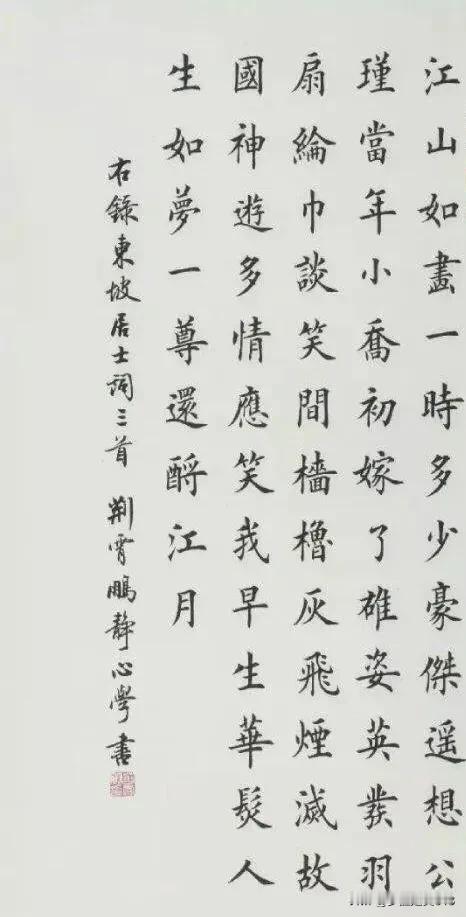 江山如畫一時多少豪傑遥想公
瑾當年小喬初嫁了雄姿英發羽
扇綸巾談笑間檣櫓灰飛煙滅故
國神遊多情應笑我早生華髮人
生如夢一尊還酹江月
右錄東坡居士詞三首 荆霄鵬静心學書